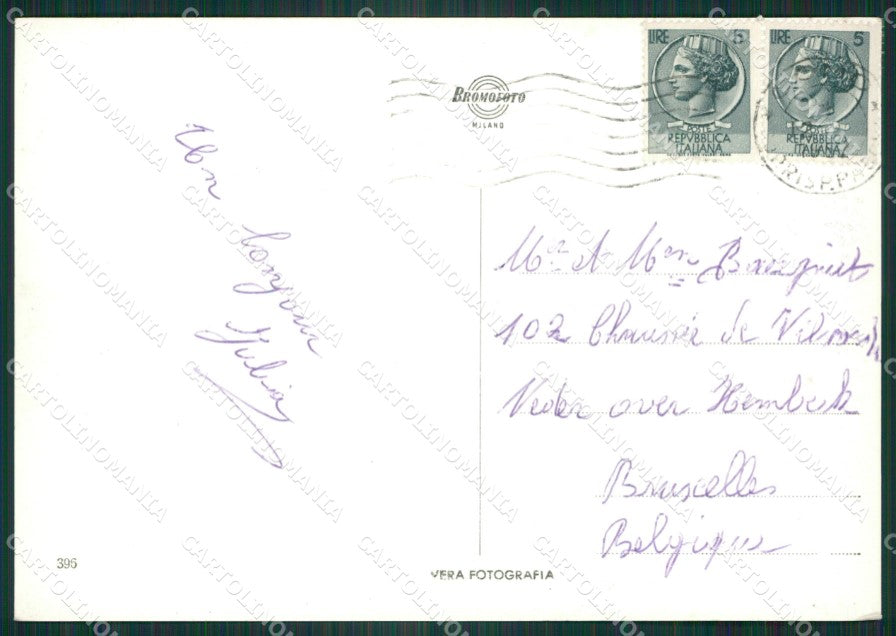 BROMOFOTO
MILANO
LIRE 5
POSTE
REPVBBLICA
ITALIANA
LIRE 5
POSTE
REPVBBLICA
ITALIANA
Un
bonjour
Julia
Mr et Mme
102 Chaussée de Vilvorde
Neder over Hembeek
Bruxelles
Belgique
396
VERA FOTOGRAFIA
CARTOLINOMANIA